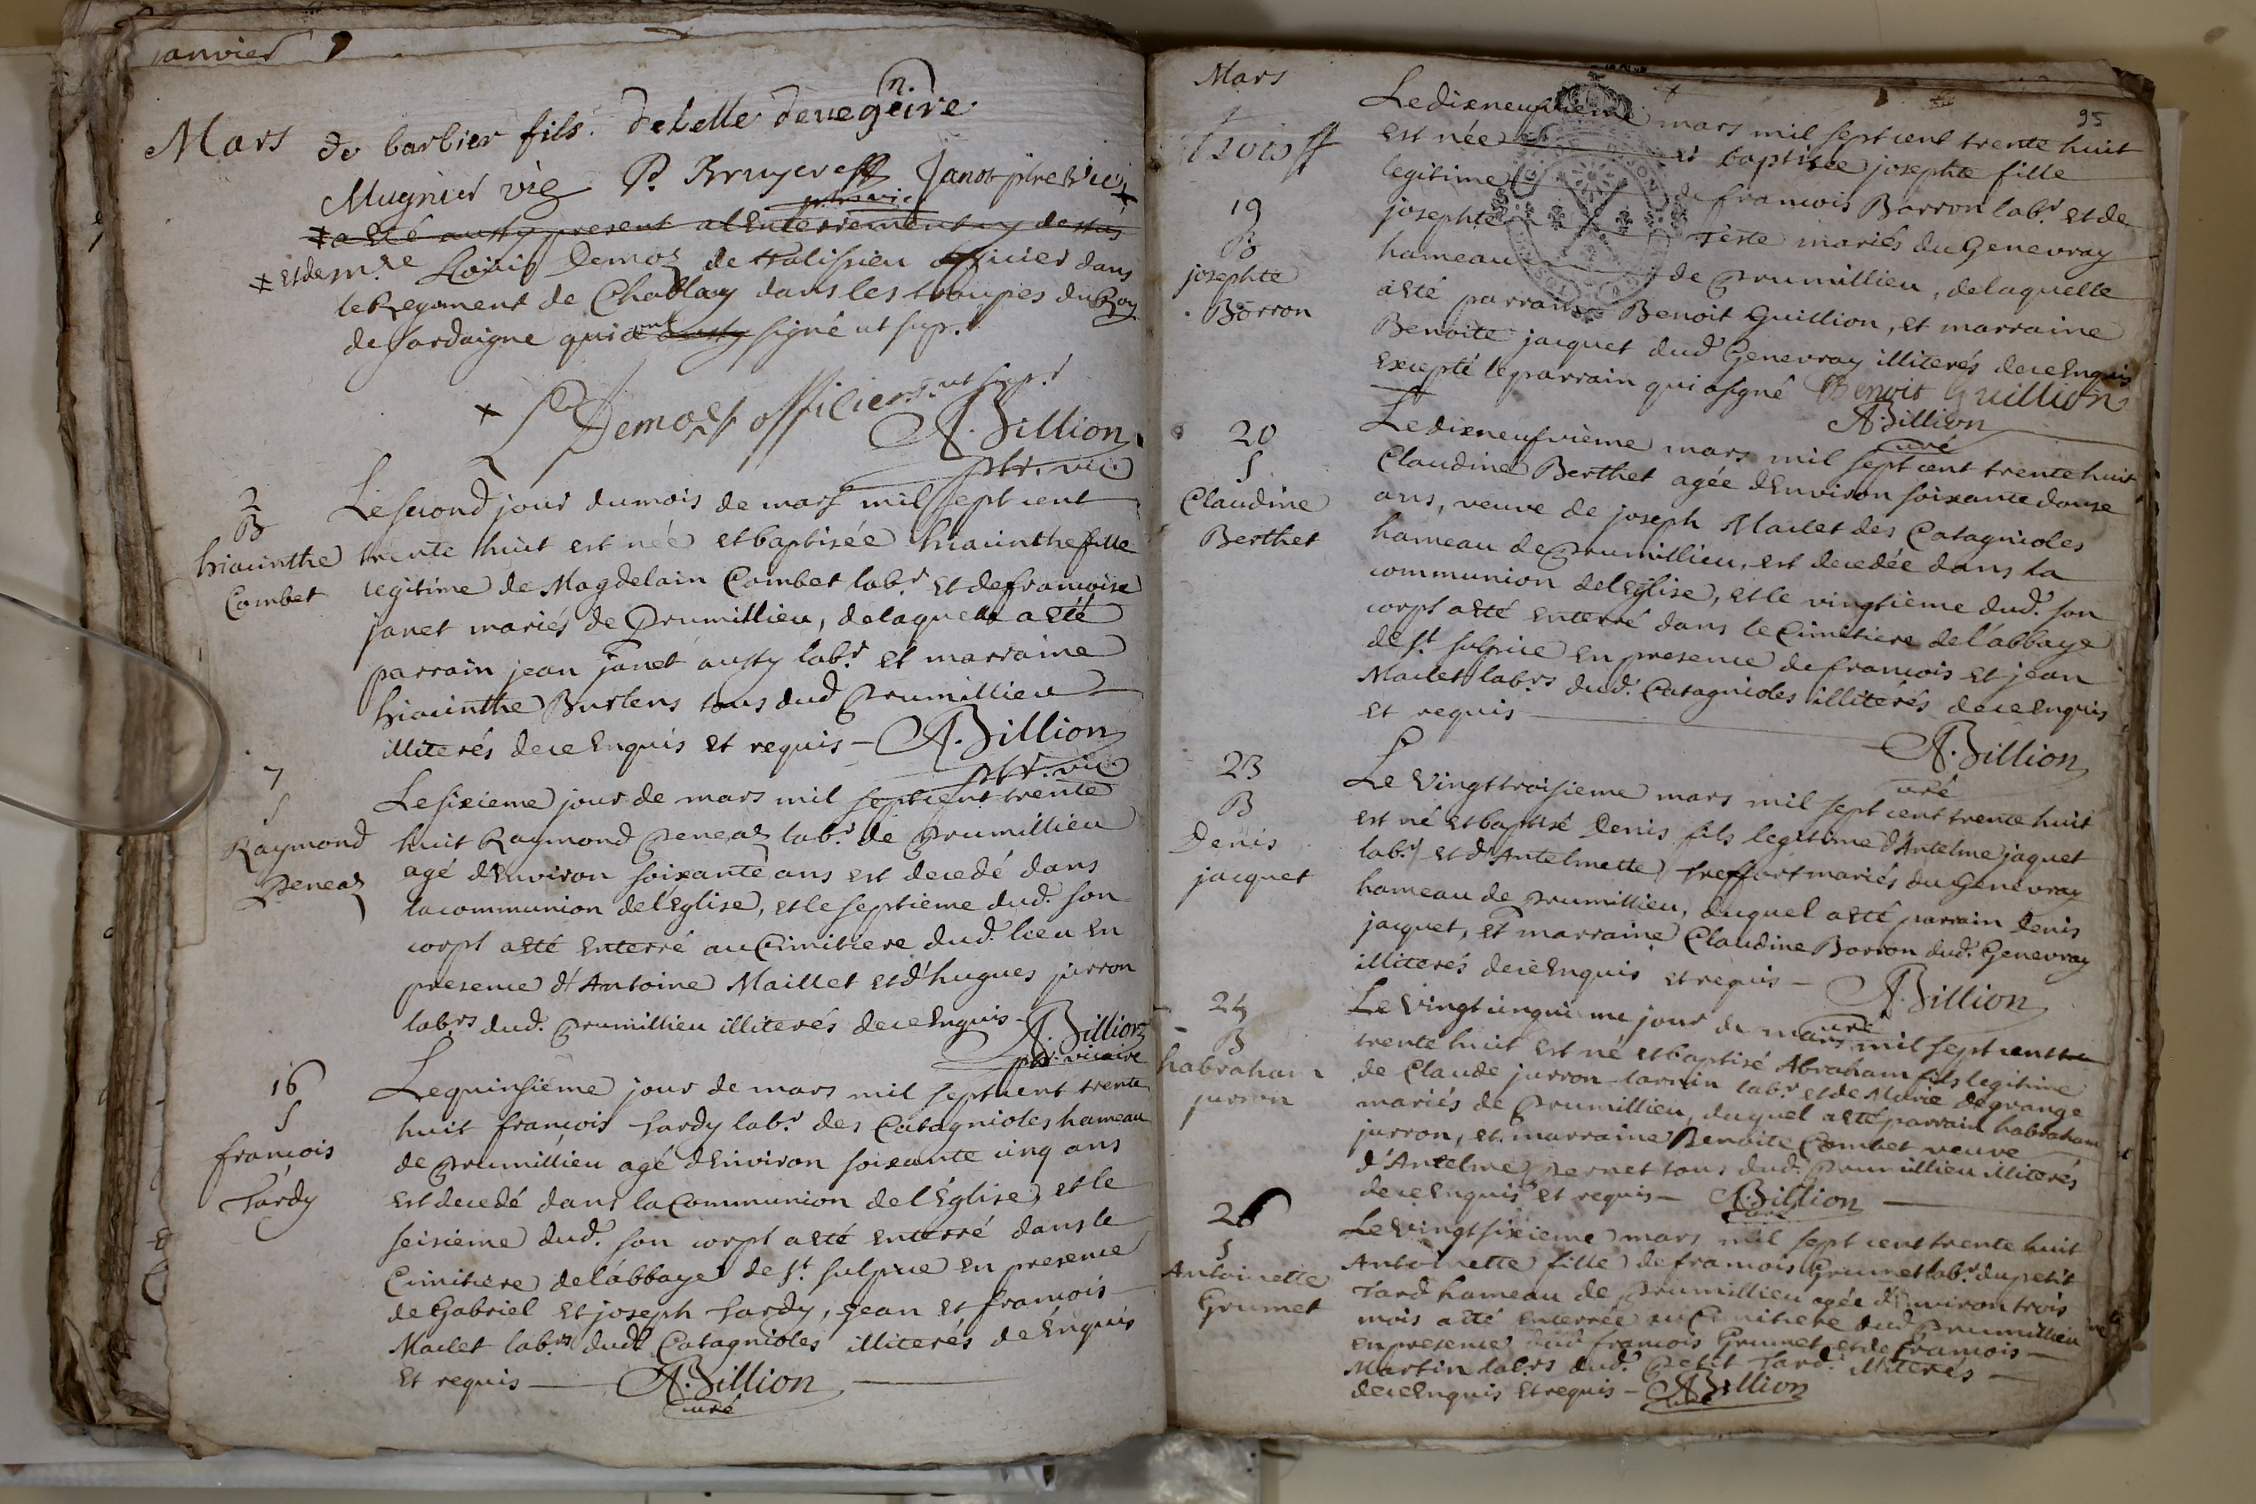 janvier
Mars
de barbier fils. Delelle devegeire
n.
Mugnier vic P. Bruyereff Janot ptre vic
ptre vic
a été aussy present a l'Enterrement cy dessus
et de mre Louis Demoz de Malisieu officier dans
le Regiment de Chablay dans les troupes du Roy
de Sardaigne qui ont aussy signé ut sup.
Demoz officier ut sup.
A. Billion
ptr. vic
2
B
hiacinthe
Combet
Le second jour du mois de mars mil sept cent
trente huit est née et baptisée hiacinthe fille
legitime de Magdelain Combet labr. et de francoise
janet mariés de Prumillieu, de laquelle a été
parrain jean janet aussy labr. et marraine
hiacinthe Burlens tous dud Prumillieu
illiterés de ce Enquis et requis — A. Billion
ptr. vic
7
S
Raymond
Peneaz
Le sixieme jour de mars mil sept cent trente
huit Raymond Peneaz labr. de Prumillieu
agé d'Environ soixante ans est decedé dans
la communion de l'Eglise, et le septieme dud. son
corps a été enterré au Cimitiere dud. lieu en
presence d'Antoine Maillet et d'hugues jurron
labrs dud. Prumillieu illiterés de ce Enquis
A. Billion
ptr. vicaire
16
S
francois
Tardy
Le quinsieme jour de mars mil sept cent trente
huit francois Tardy labr. des Catagnioles hameau
de Prumillieu agé d'Environ soixante cinq ans
est decedé dans la Communion de l'Église, et le
seisieme dud. son corps a été enterré dans le
Cimitiere de l'abbaye de St. Sulpice en presence
de Gabriel et joseph Tardy, jean et francois
Maclet labrs dud. Catagnioles illiterés de Enquis
et requis — A. Billion
curé
Mars
95
trois
19
B
josephte
Borron
Le dixneufvieme mars mil sept cent trente huit
est née et baptisée josephte fille
legitime de francois Barron labr. et de
josephte Teste mariés du Genevray
hameau de Prumillieu, de laquelle
a été parrain Benoit Guillion, et marraine
Benoite jacquet dud Genevray illiterés de ce Enquis
excepté le parrain qui a signé Benoit Guillion
A. Billion
curé
20
S
Claudine
Berthet
Le dixneufvieme mars mil sept cent trente huit
Claudine Berthet agée d'Environ soixante douse
ans, veuve de joseph Maclet des Catagnioles
hameau de Prumillieu, est decedée dans la
communion de l'Eglise, et le vingtieme dud. son
corps a été enterré dans le Cimitiere de l'abbaye
de St. Sulpice en presence de francois et jean
Maclet labrs dud. Catagnioles illiterés de ce Enquis
et requis —
A. Billion
curé
23
B
Denis
jacquet
Le Vingt troisieme mars mil sept cent trente huit
est né et baptisé Denis fils legitime d'Antelme jaquet
labr. et d'Antelmette treffort mariés du Genevray
hameau de Prumillieu, duquel a été parrain Denis
jacquet, et marraine Claudine Borron dud. Genevray
illiterés de ce Enquis et requis — A. Billion
curé
25
B
habraham
jurron
Le Vingt cinquieme jour de mars mil sept cent
trente huit est né et baptisé Abraham fils legitime
de Claude jurron tarnin labr. et de Marie degrange
mariés de Prumillieu, duquel a été parrain habraham
jurron, et marraine Benoite Combet veuve
d'Antelme Pernet tous dud. Prumillieu illiterés
de ce Enquis et requis — A. Billion
curé
26
S
Antoinette
Grumet
Le Vingt sixieme mars mil sept cent trente huit
Antoinette fille de francois Grumet labr. du petit
Tard hameau de Prumillieu agée d'Environ trois
mois a été enterrée au Cimitiere dud Prumillieu
en presence dud francois Grumet et de francois
Martin labrs dud. Petit Tard. illiterés
de ce Enquis et requis — A. Billion
curé